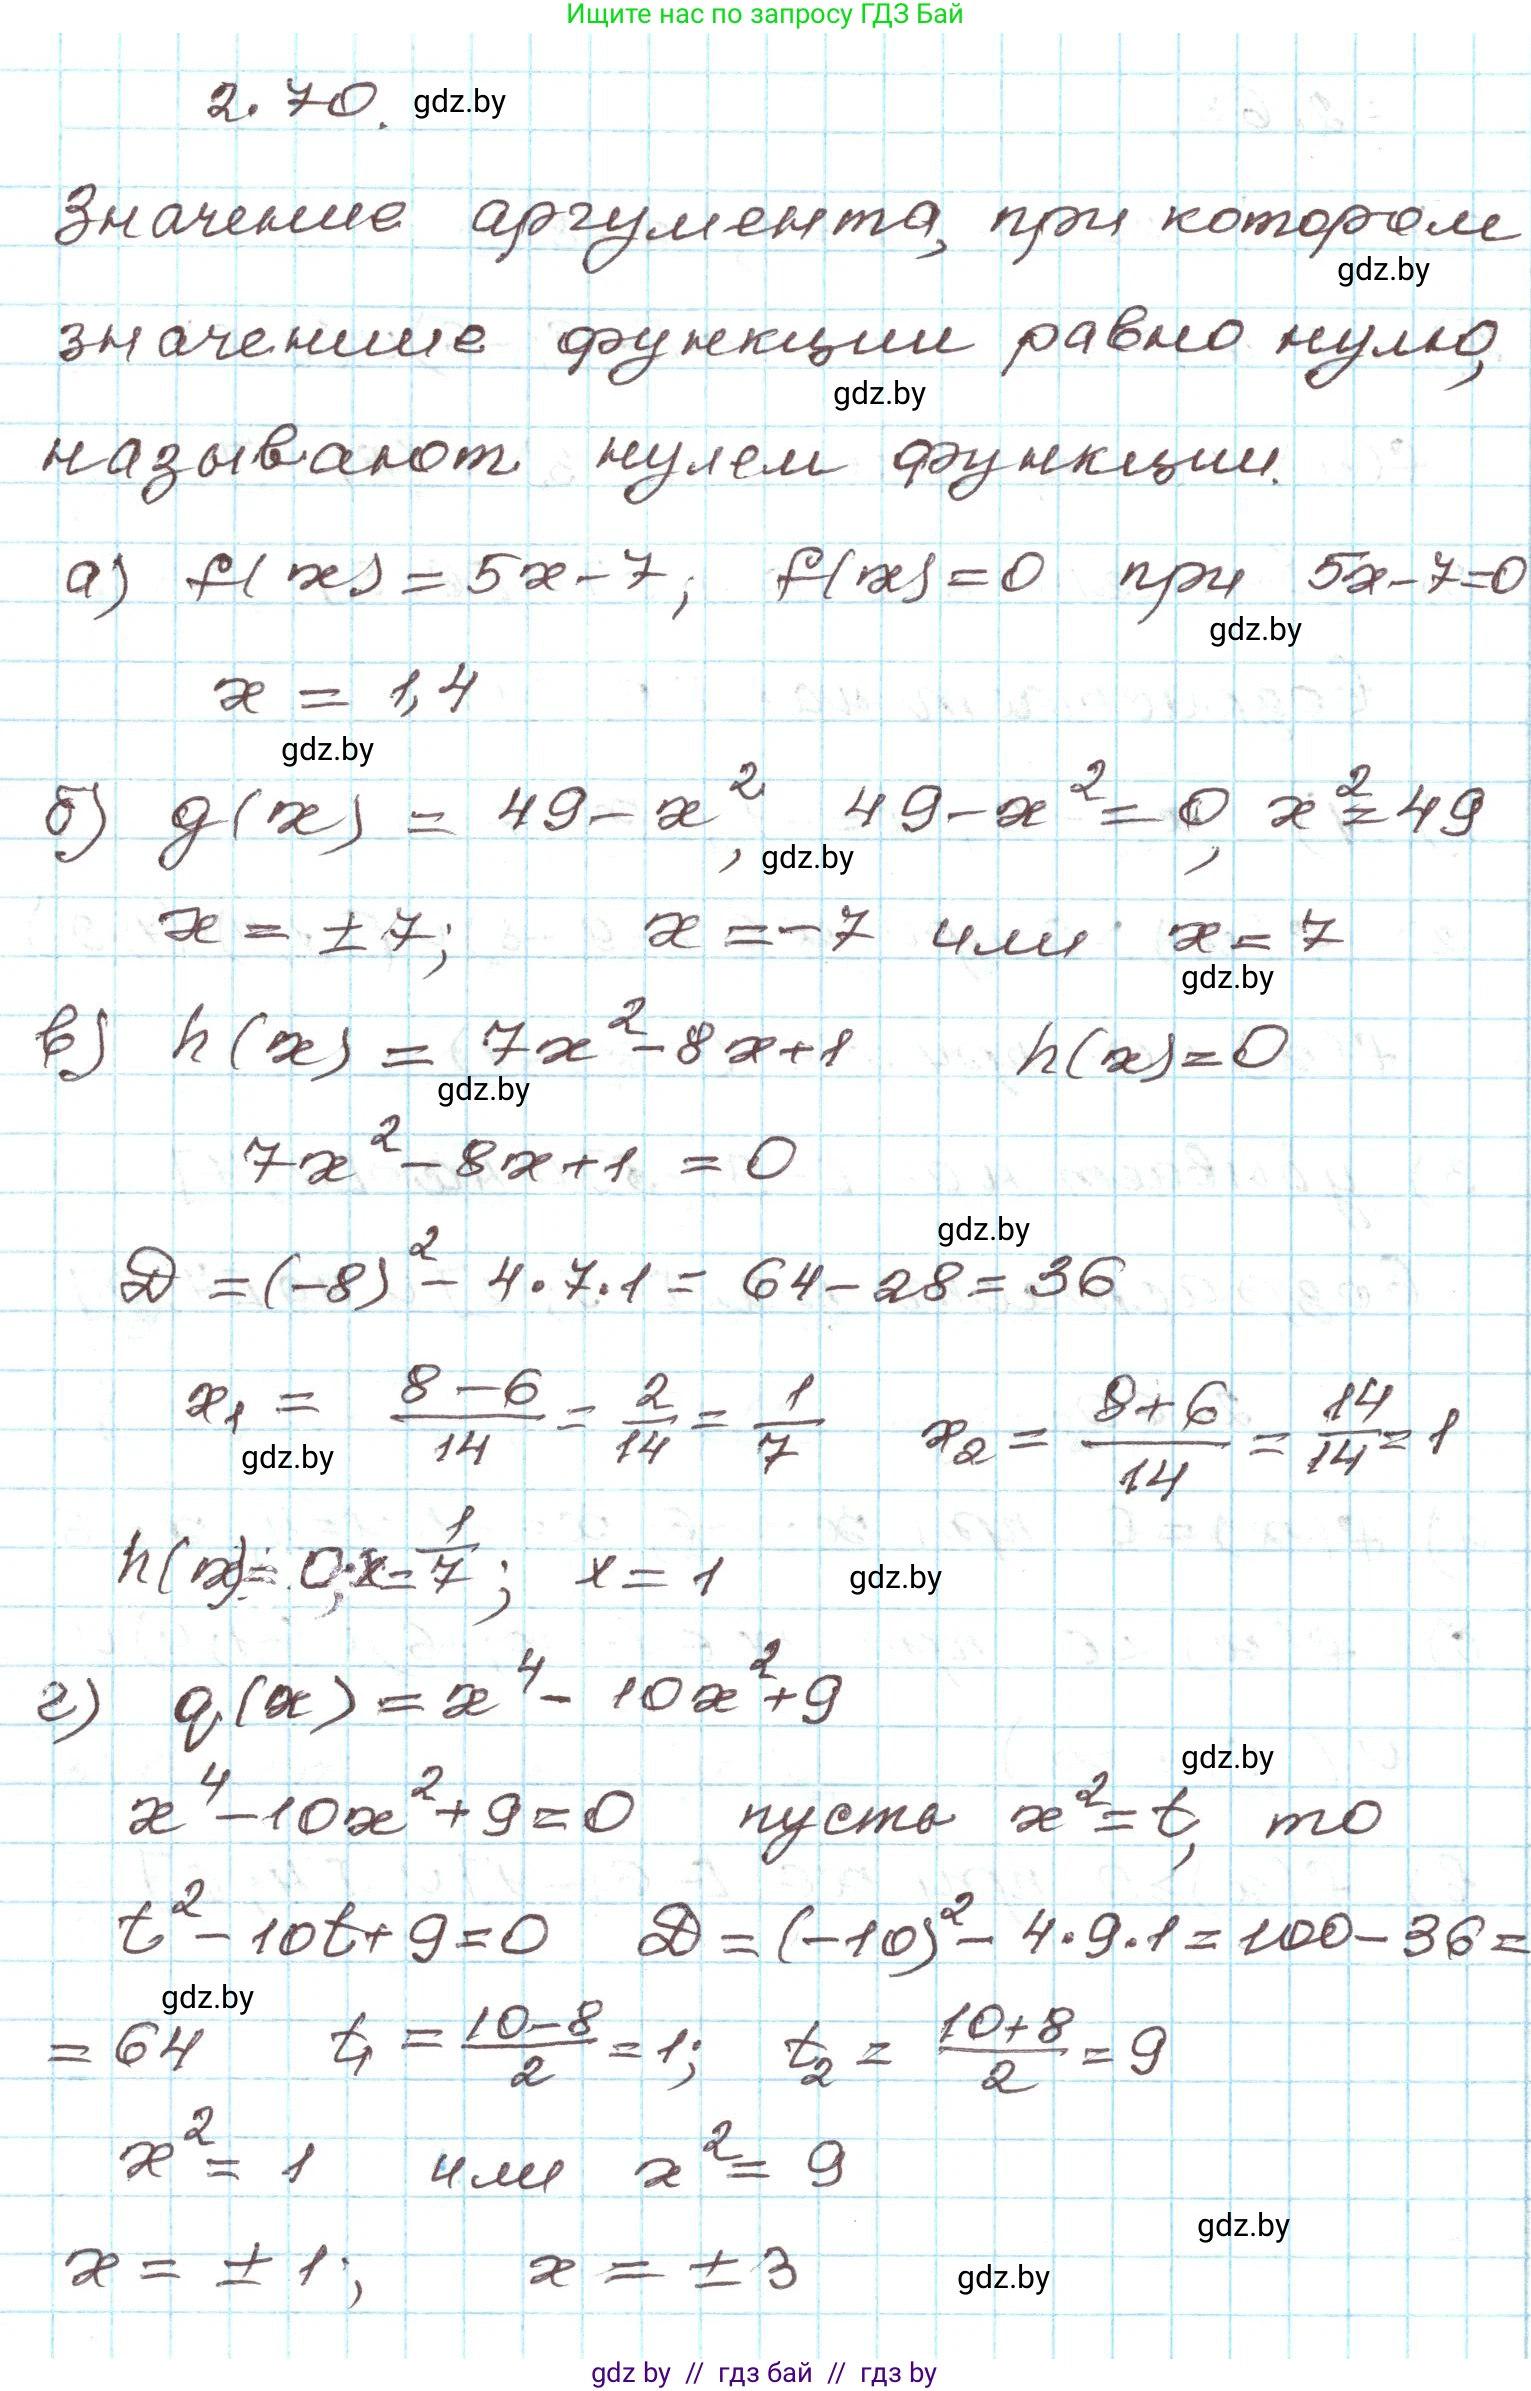 Ищите нас по запросу ГДЗ Бай
2.70. gdz.by
Значение аргумента, при котором
gdz.by
значение функции равно нулю,
gdz.by
называют нулем функции.
а) f(x) = 5x - 7; f(x) = 0 при 5x - 7 = 0
gdz.by
x = 1,4
gdz.by
б) g(x) = 49 - x², 49 - x² = 0, x² = 49
gdz.by
x = ±7; x = -7 или x = 7
gdz.by
в) h(x) = 7x² - 8x + 1 h(x) = 0
gdz.by
7x² - 8x + 1 = 0
gdz.by
D = (-8)² - 4·7·1 = 64 - 28 = 36
x₁ = (8 - 6)/14 = 2/14 = 1/7 x₂ = (8 + 6)/14 = 14/14 = 1
gdz.by
h(x) = 0; x = 1/7; x = 1 gdz.by
г) q(x) = x⁴ - 10x² + 9
gdz.by
x⁴ - 10x² + 9 = 0 пусть x² = t, то
t² - 10t + 9 = 0 D = (-10)² - 4·9·1 = 100 - 36 =
gdz.by
= 64 t₁ = (10 - 8)/2 = 1; t₂ = (10 + 8)/2 = 9
x² = 1 или x² = 9
gdz.by
x = ±1; x = ±3 gdz.by
gdz by // гдз бай // гдз by